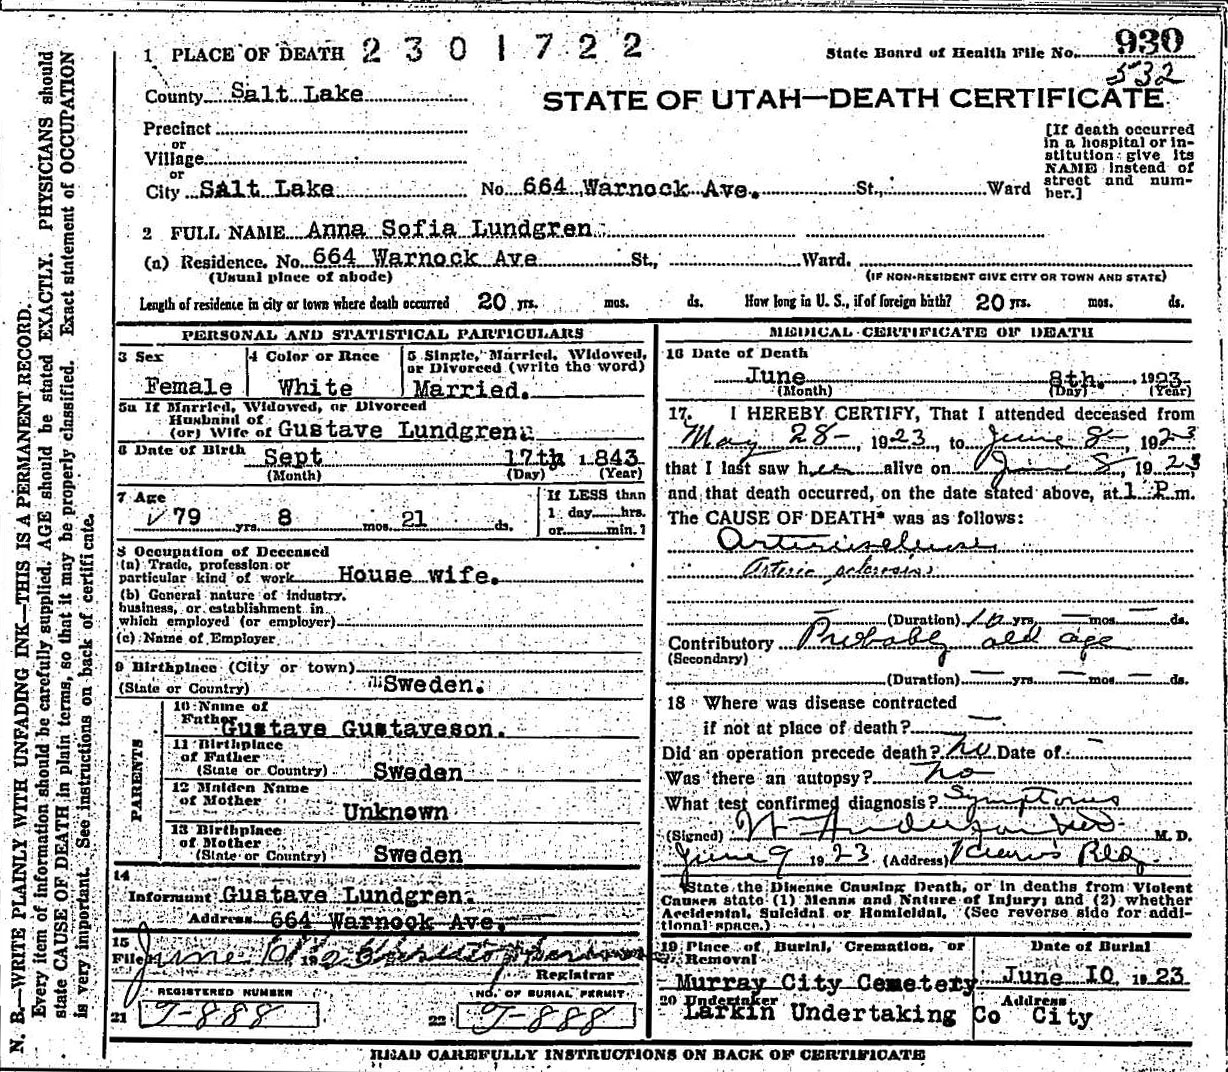 1 PLACE OF DEATH 2 3 0 1 7 2 2
State Board of Health File No. 930
532
County Salt Lake
STATE OF UTAH—DEATH CERTIFICATE
Precinct
or
Village
or
City Salt Lake No. 664 Warnock Ave. St., Ward
[If death occurred
in a hospital or in-
stitution give its
NAME instead of
street and num-
ber.]
2 FULL NAME Anna Sofia Lundgren
(a) Residence. No. 664 Warnock Ave St., Ward.
(Usual place of abode) (IF NON-RESIDENT GIVE CITY OR TOWN AND STATE)
Length of residence in city or town where death occurred 20 yrs. mos. ds. How long in U. S., if of foreign birth? 20 yrs. mos. ds.
PERSONAL AND STATISTICAL PARTICULARS
3 Sex
Female
4 Color or Race
White
5 Single, Married, Widowed,
or Divorced (write the word)
Married.
5a If Married, Widowed, or Divorced
Husband of
(or) Wife of Gustave Lundgren
6 Date of Birth Sept 17th 1843
(Month) (Day) (Year)
7 Age
79 yrs. 8 mos. 21 ds.
If LESS than
1 day hrs.
or min.?
8 Occupation of Deceased
(a) Trade, profession or
particular kind of work House wife.
(b) General nature of industry,
business, or establishment in
which employed (or employer)
(c) Name of Employer
9 Birthplace (City or town)
(State or Country) Sweden.
PARENTS
10 Name of
Father Gustave Gustaveson.
11 Birthplace
of Father
(State or Country) Sweden
12 Maiden Name
of Mother
Unknown
13 Birthplace
of Mother
(State or Country) Sweden
14
Informant Gustave Lundgren.
Address 664 Warnock Ave.
15
Filed June
Registrar
REGISTERED NUMBER
21 J-888
NO. OF BURIAL PERMIT
22 J-888
MEDICAL CERTIFICATE OF DEATH
16 Date of Death
June 8th. 1923
(Month) (Day) (Year)
17. I HEREBY CERTIFY, That I attended deceased from
May 28- 1923, to June 8- 1923
that I last saw her alive on June 8, 1923
and that death occurred, on the date stated above, at 1 P.m.
The CAUSE OF DEATH* was as follows:
Arteriosclerosis
Arterio sclerosis
(Duration) 10 yrs. — mos. — ds.
Contributory Probably old age
(Secondary)
(Duration) — yrs. — mos. — ds.
18 Where was disease contracted
if not at place of death? —
Did an operation precede death? No Date of —
Was there an autopsy? No
What test confirmed diagnosis? Symptoms
(Signed) M. D.
June 9 1923 (Address) Bldg.
*State the Disease Causing Death, or in deaths from Violent
Causes state (1) Means and Nature of Injury; and (2) whether
Accidental, Suicidal or Homicidal. (See reverse side for addi-
tional space.)
19 Place of Burial, Cremation, or
Removal
Murray City Cemetery
Date of Burial
June 10 1923
20 Undertaker
Larkin Undertaking Co
Address
City
READ CAREFULLY INSTRUCTIONS ON BACK OF CERTIFICATE
N. B.—WRITE PLAINLY WITH UNFADING INK—THIS IS A PERMANENT RECORD.
Every item of information should be carefully supplied. AGE should be stated EXACTLY. PHYSICIANS should
state CAUSE OF DEATH in plain terms, so that it may be properly classified. Exact statement of OCCUPATION
is very important. See instructions on back of certificate.